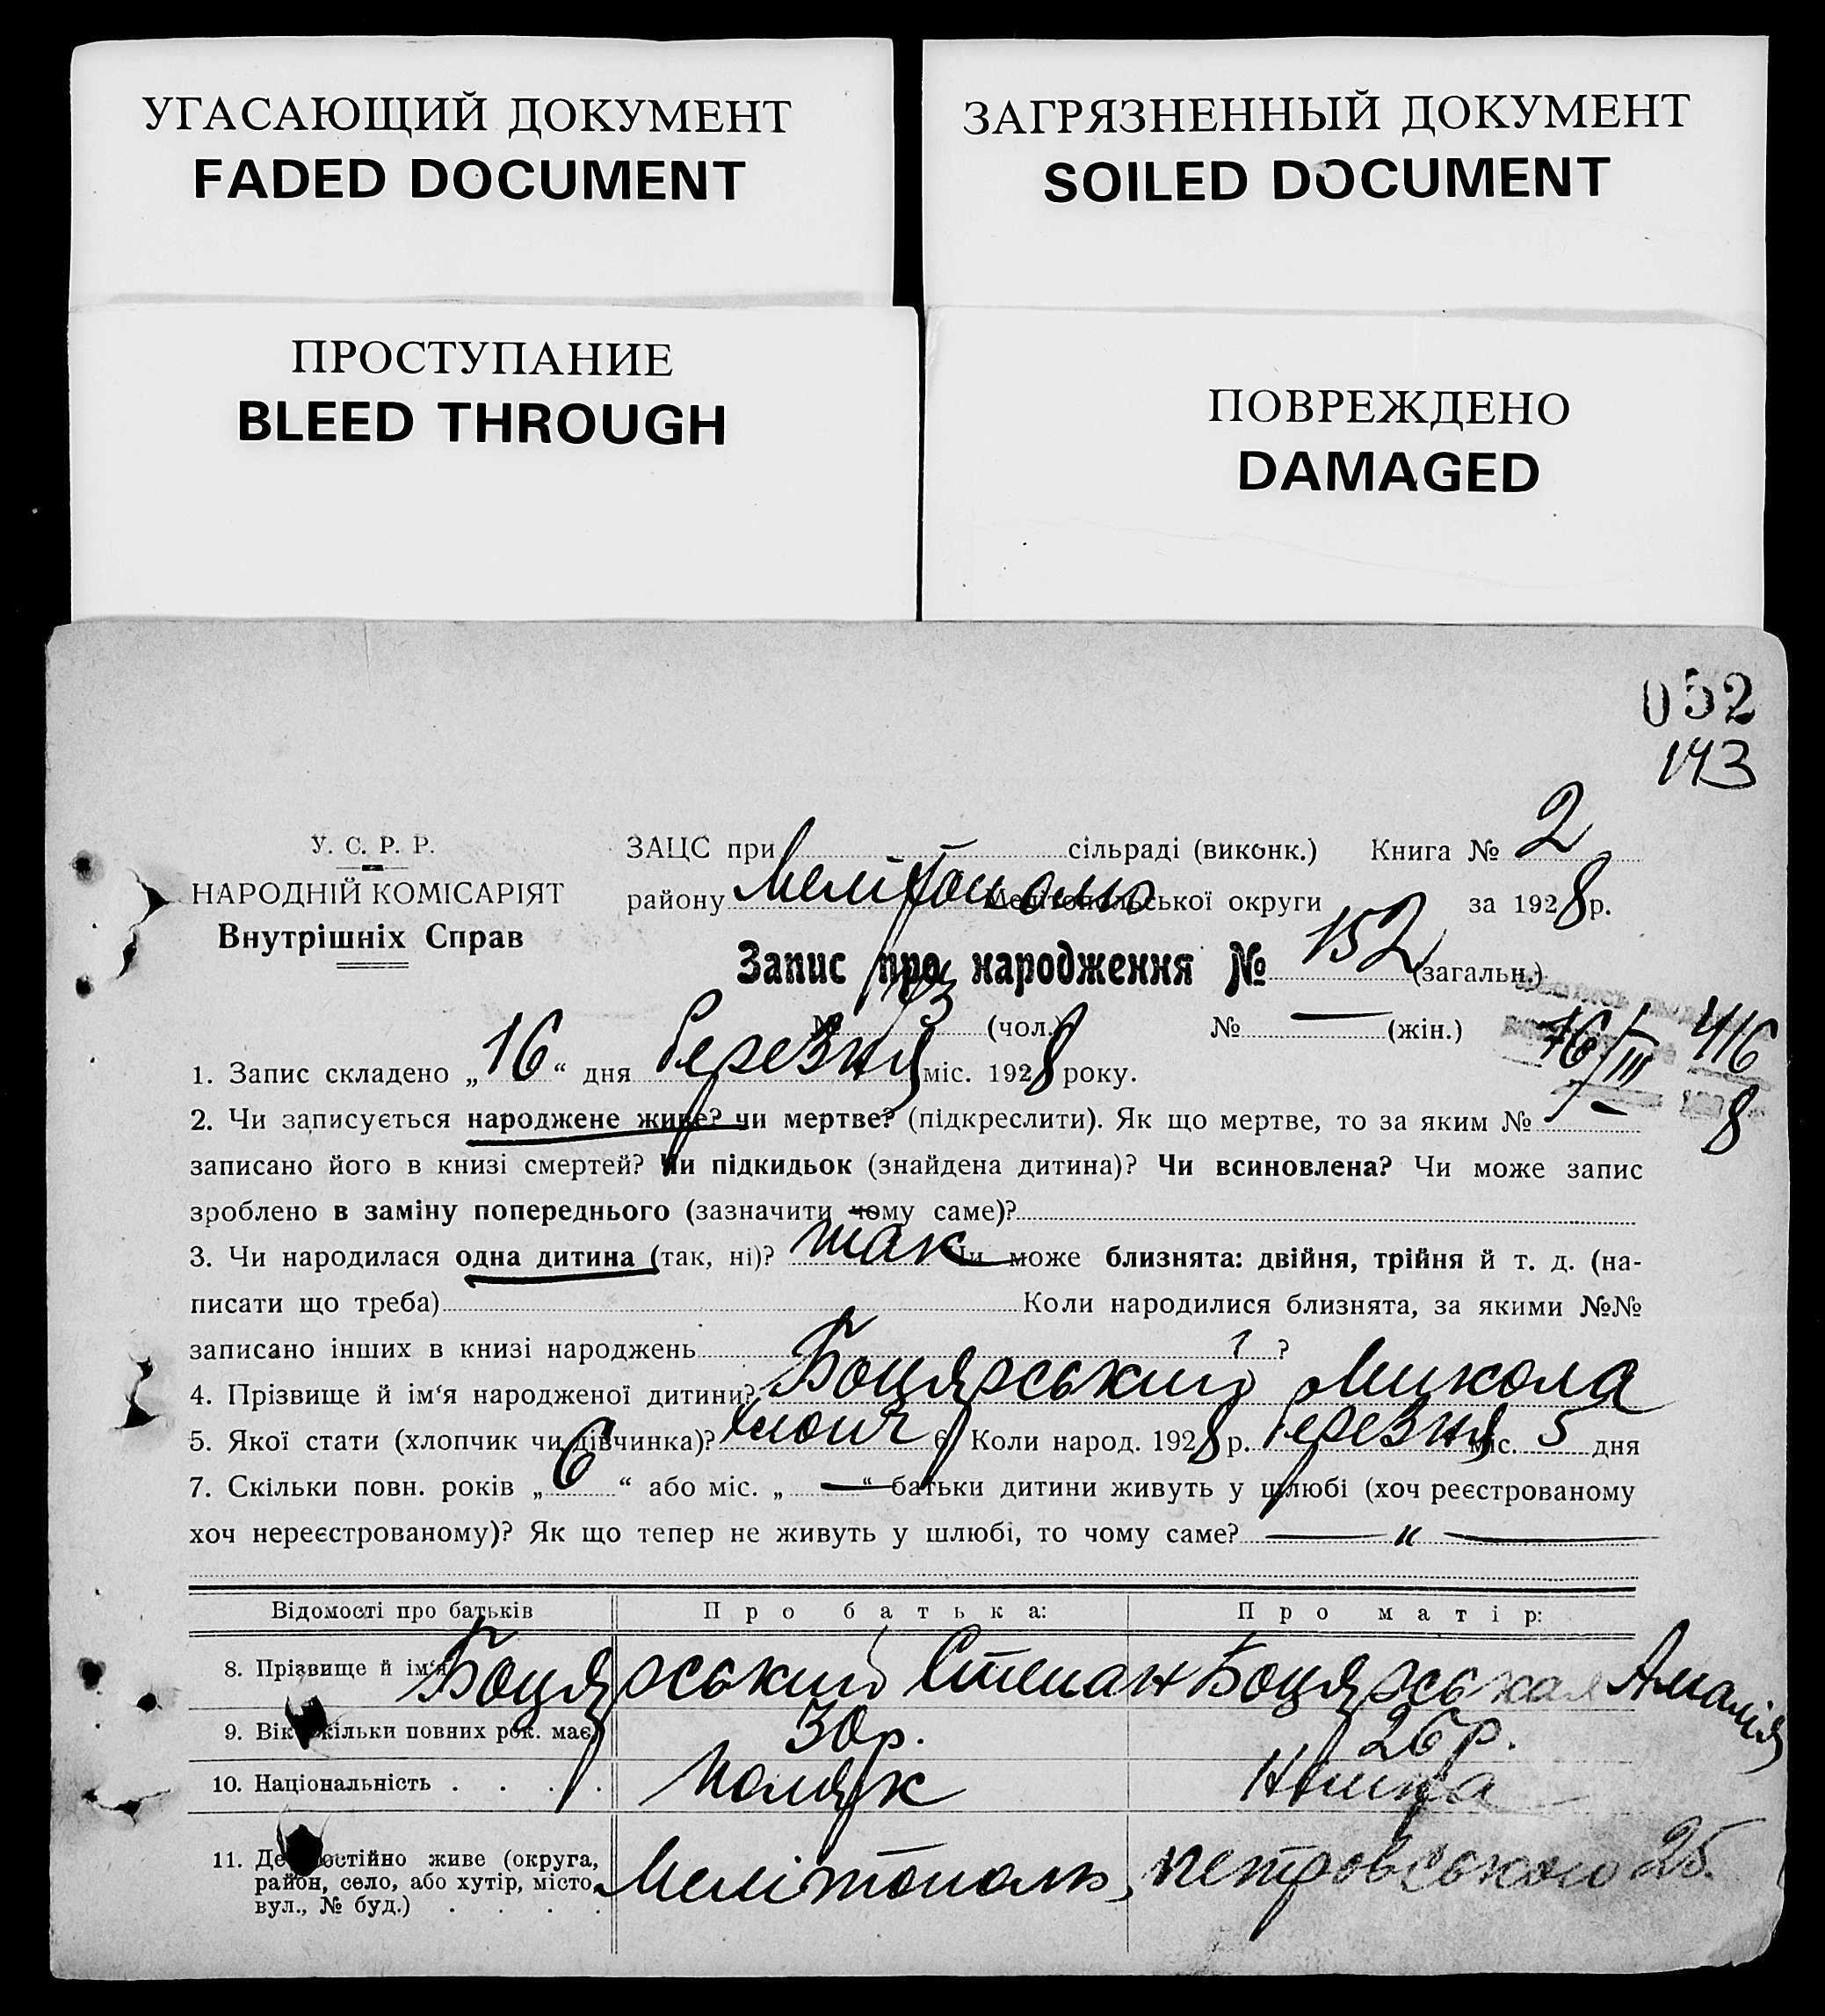 УГАСАЮЩИЙ ДОКУМЕНТ
FADED DOCUMENT
ЗАГРЯЗНЕННЫЙ ДОКУМЕНТ
SOILED DOCUMENT
ПРОСТУПАНИЕ
BLEED THROUGH
ПОВРЕЖДЕНО
DAMAGED
052
143
У. С. Р. Р.
НАРОДНІЙ КОМІСАРІЯТ
Внутрішніх Справ
ЗАЦС при сільраді (виконк.) Книга № 2
району Мелітополь Мелітопольської округи за 1928 р.
Запис про народження № 152 (загальн.)
№ (чол.) № — (жін.)
16/III 416
8
1. Запис складено „16“ дня березня міс. 1928 року.
2. Чи записується народжене живе? чи мертве? (підкреслити). Як що мертве, то за яким № —
записано його в книзі смертей? Чи підкидьок (знайдена дитина)? Чи всиновлена? Чи може запис
зроблено в заміну попереднього (зазначити чому саме)?
3. Чи народилася одна дитина (так, ні)? так Чи може близнята: двійня, трійня й т. д. (на-
писати що треба) Коли народилися близнята, за якими №№
записано інших в книзі народжень ?
4. Прізвище й ім‘я народженої дитини? Боцярський Микола
5. Якої стати (хлопчик чи дівчинка)? хлопч 6. Коли народ. 1928 р. березня міс. 5 дня
7. Скільки повн. років „6“ або міс. „—“ батьки дитини живуть у шлюбі (хоч реєстрованому
хоч нереєстрованому)? Як що тепер не живуть у шлюбі, то чому саме? — „ —
Відомості про батьків Про батька: Про матір:
8. Прізвище й ім‘я Боцярський Степан Боцярськая Амалія
9. Вік скільки повних рок. має 30 р. 26 р.
10. Національність . . . . Поляк Німка
11. Де постійно живе (округа,
район, село, або хутір, місто,
вул., № буд.) . . . . Мелітополь, Петровського 25.